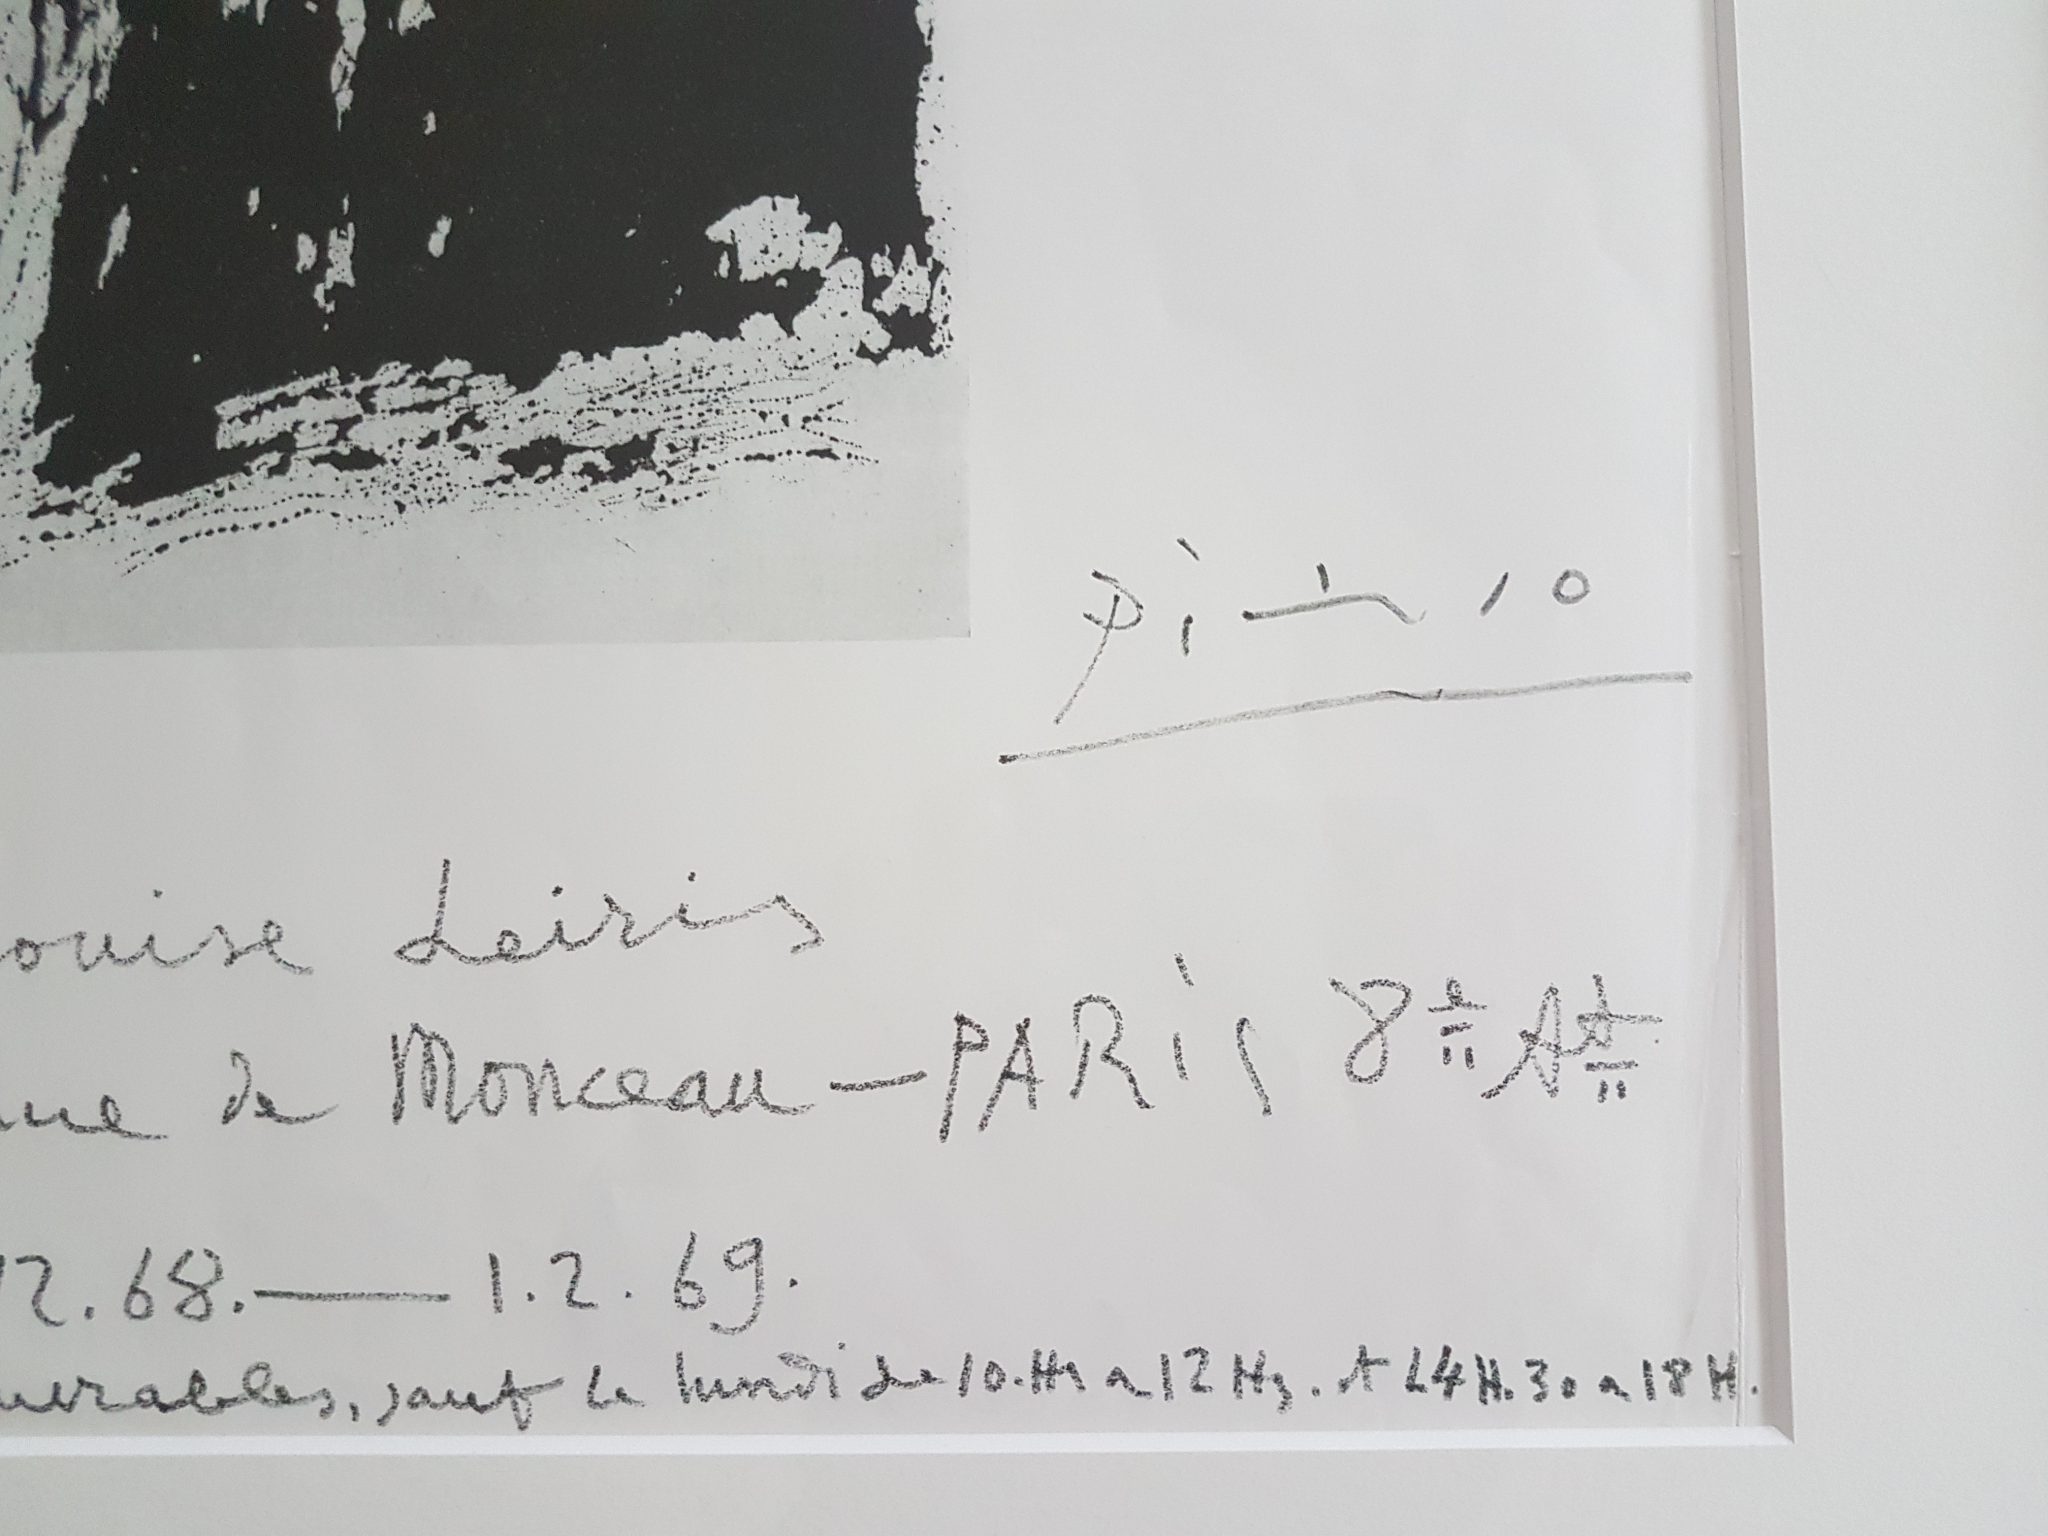 Picasso
ouise Leiris
rue de Monceau — PARis 8e At
12.68. — 1.2.69.
ouvrables, sauf le lundi de 10.Hs a 12 Hs. et 14H.30 a 18H.